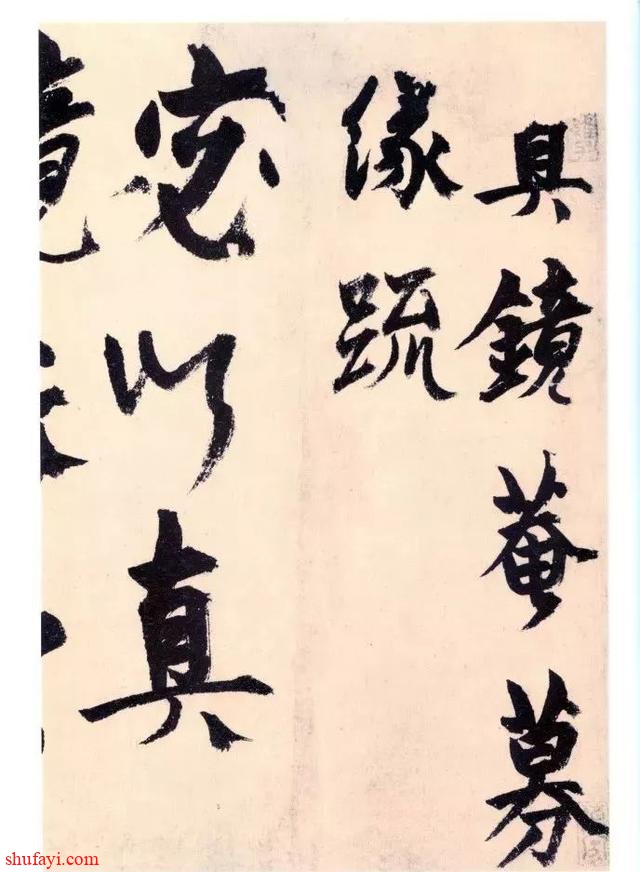 具鏡菴募
緣疏
宓以真
shufayi.com